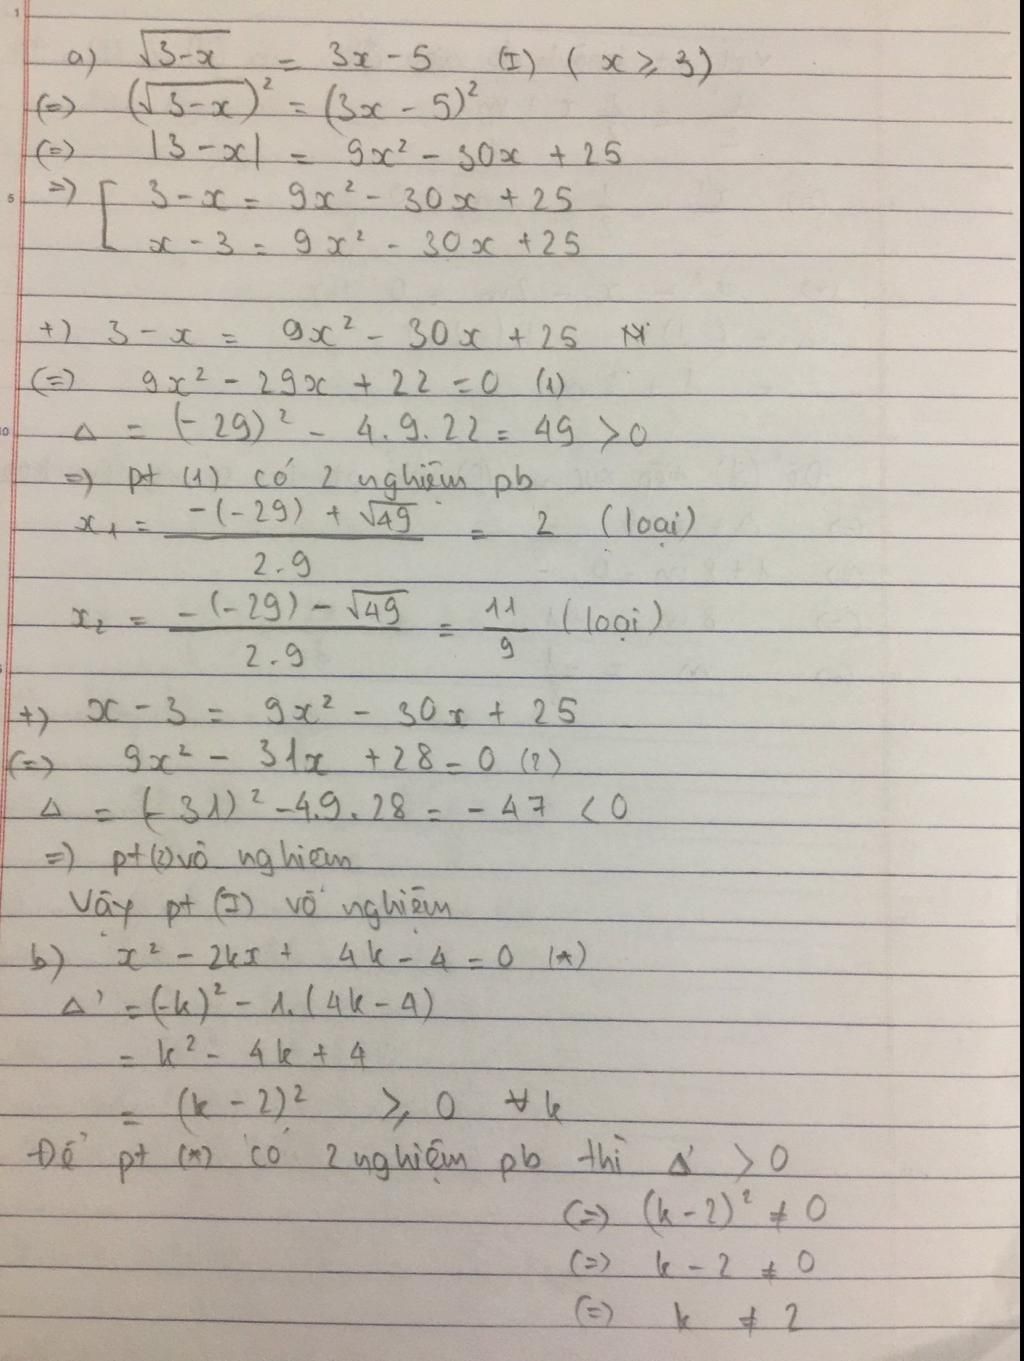 a) √(3-x) = 3x - 5 (I) ( x ⩾ 3)
(=) (√(3-x))² = (3x - 5)²
(=) |3 - x| = 9x² - 30x + 25
=) [ 3 - x = 9x² - 30x + 25
x - 3 = 9x² - 30x + 25
+) 3 - x = 9x² - 30x + 25
(=) 9x² - 29x + 22 = 0 (1)
Δ = (-29)² - 4.9.22 = 49 > 0
=) pt (1) có 2 nghiệm pb
x₁ = (-(-29) + √49)/(2.9) = 2 (loại)
x₂ = (-(-29) - √49)/(2.9) = 11/9 (loại)
+) x - 3 = 9x² - 30x + 25
(=) 9x² - 31x + 28 = 0 (2)
Δ = (-31)² - 4.9.28 = - 47 < 0
=) pt (2) vô nghiệm
Vậy pt (I) vô nghiệm
b) x² - 2kx + 4k - 4 = 0 (*)
Δ' = (-k)² - 1.(4k - 4)
= k² - 4k + 4
= (k - 2)² ⩾ 0 ∀ k
Để pt (*) có 2 nghiệm pb thì Δ' > 0
(=) (k - 2)² ≠ 0
(=) k - 2 ≠ 0
(=) k ≠ 2